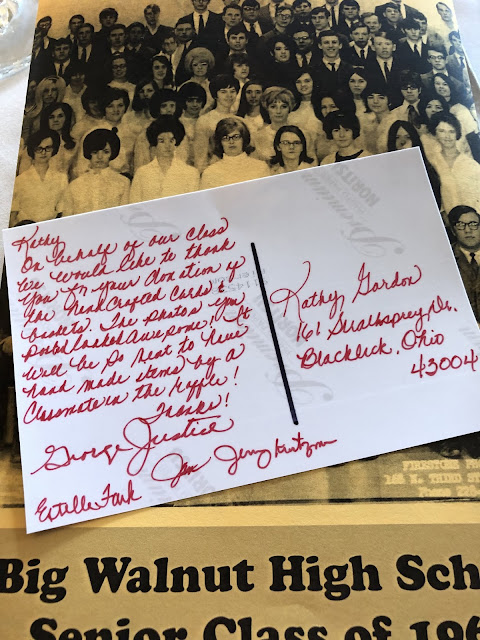 Kathy
On behalf of our class
We would like to thank
you for your donation of
the HandCrafted Cards &
baskets. The photos you
posted looked awesome! It
will be so neat to have
hand made items by a
Classmate in the raffle!
Thanks!
George Justice
Estelle Fark
Jenny
Kathy Gordon
161 Strathspey Dr.
Blacklick, Ohio
43004
Premium
NORITSU
Big Walnut High Sch
Senior Class of 196